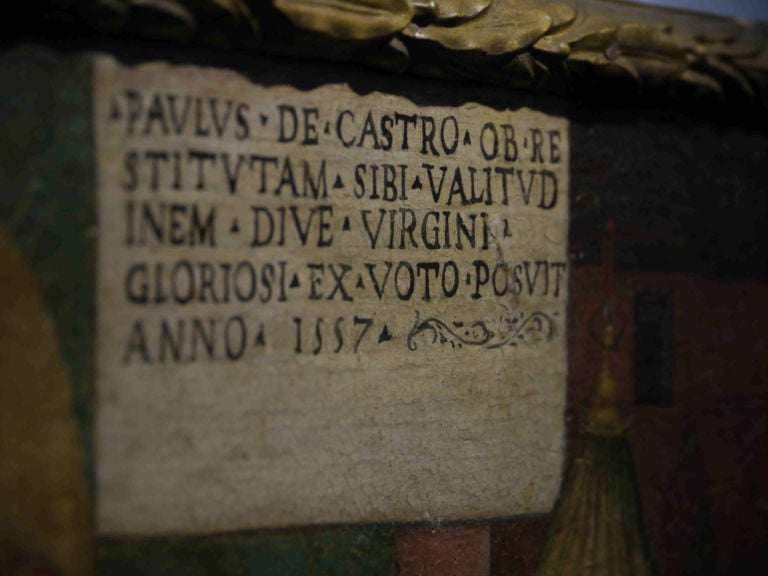 PAVLVS · DE · CASTRO · OB · RE
STITVTAM · SIBI · VALITVD
INEM · DIVE · VIRGINI ·
GLORIOSI · EX · VOTO · POSVIT
ANNO · 1557 ·